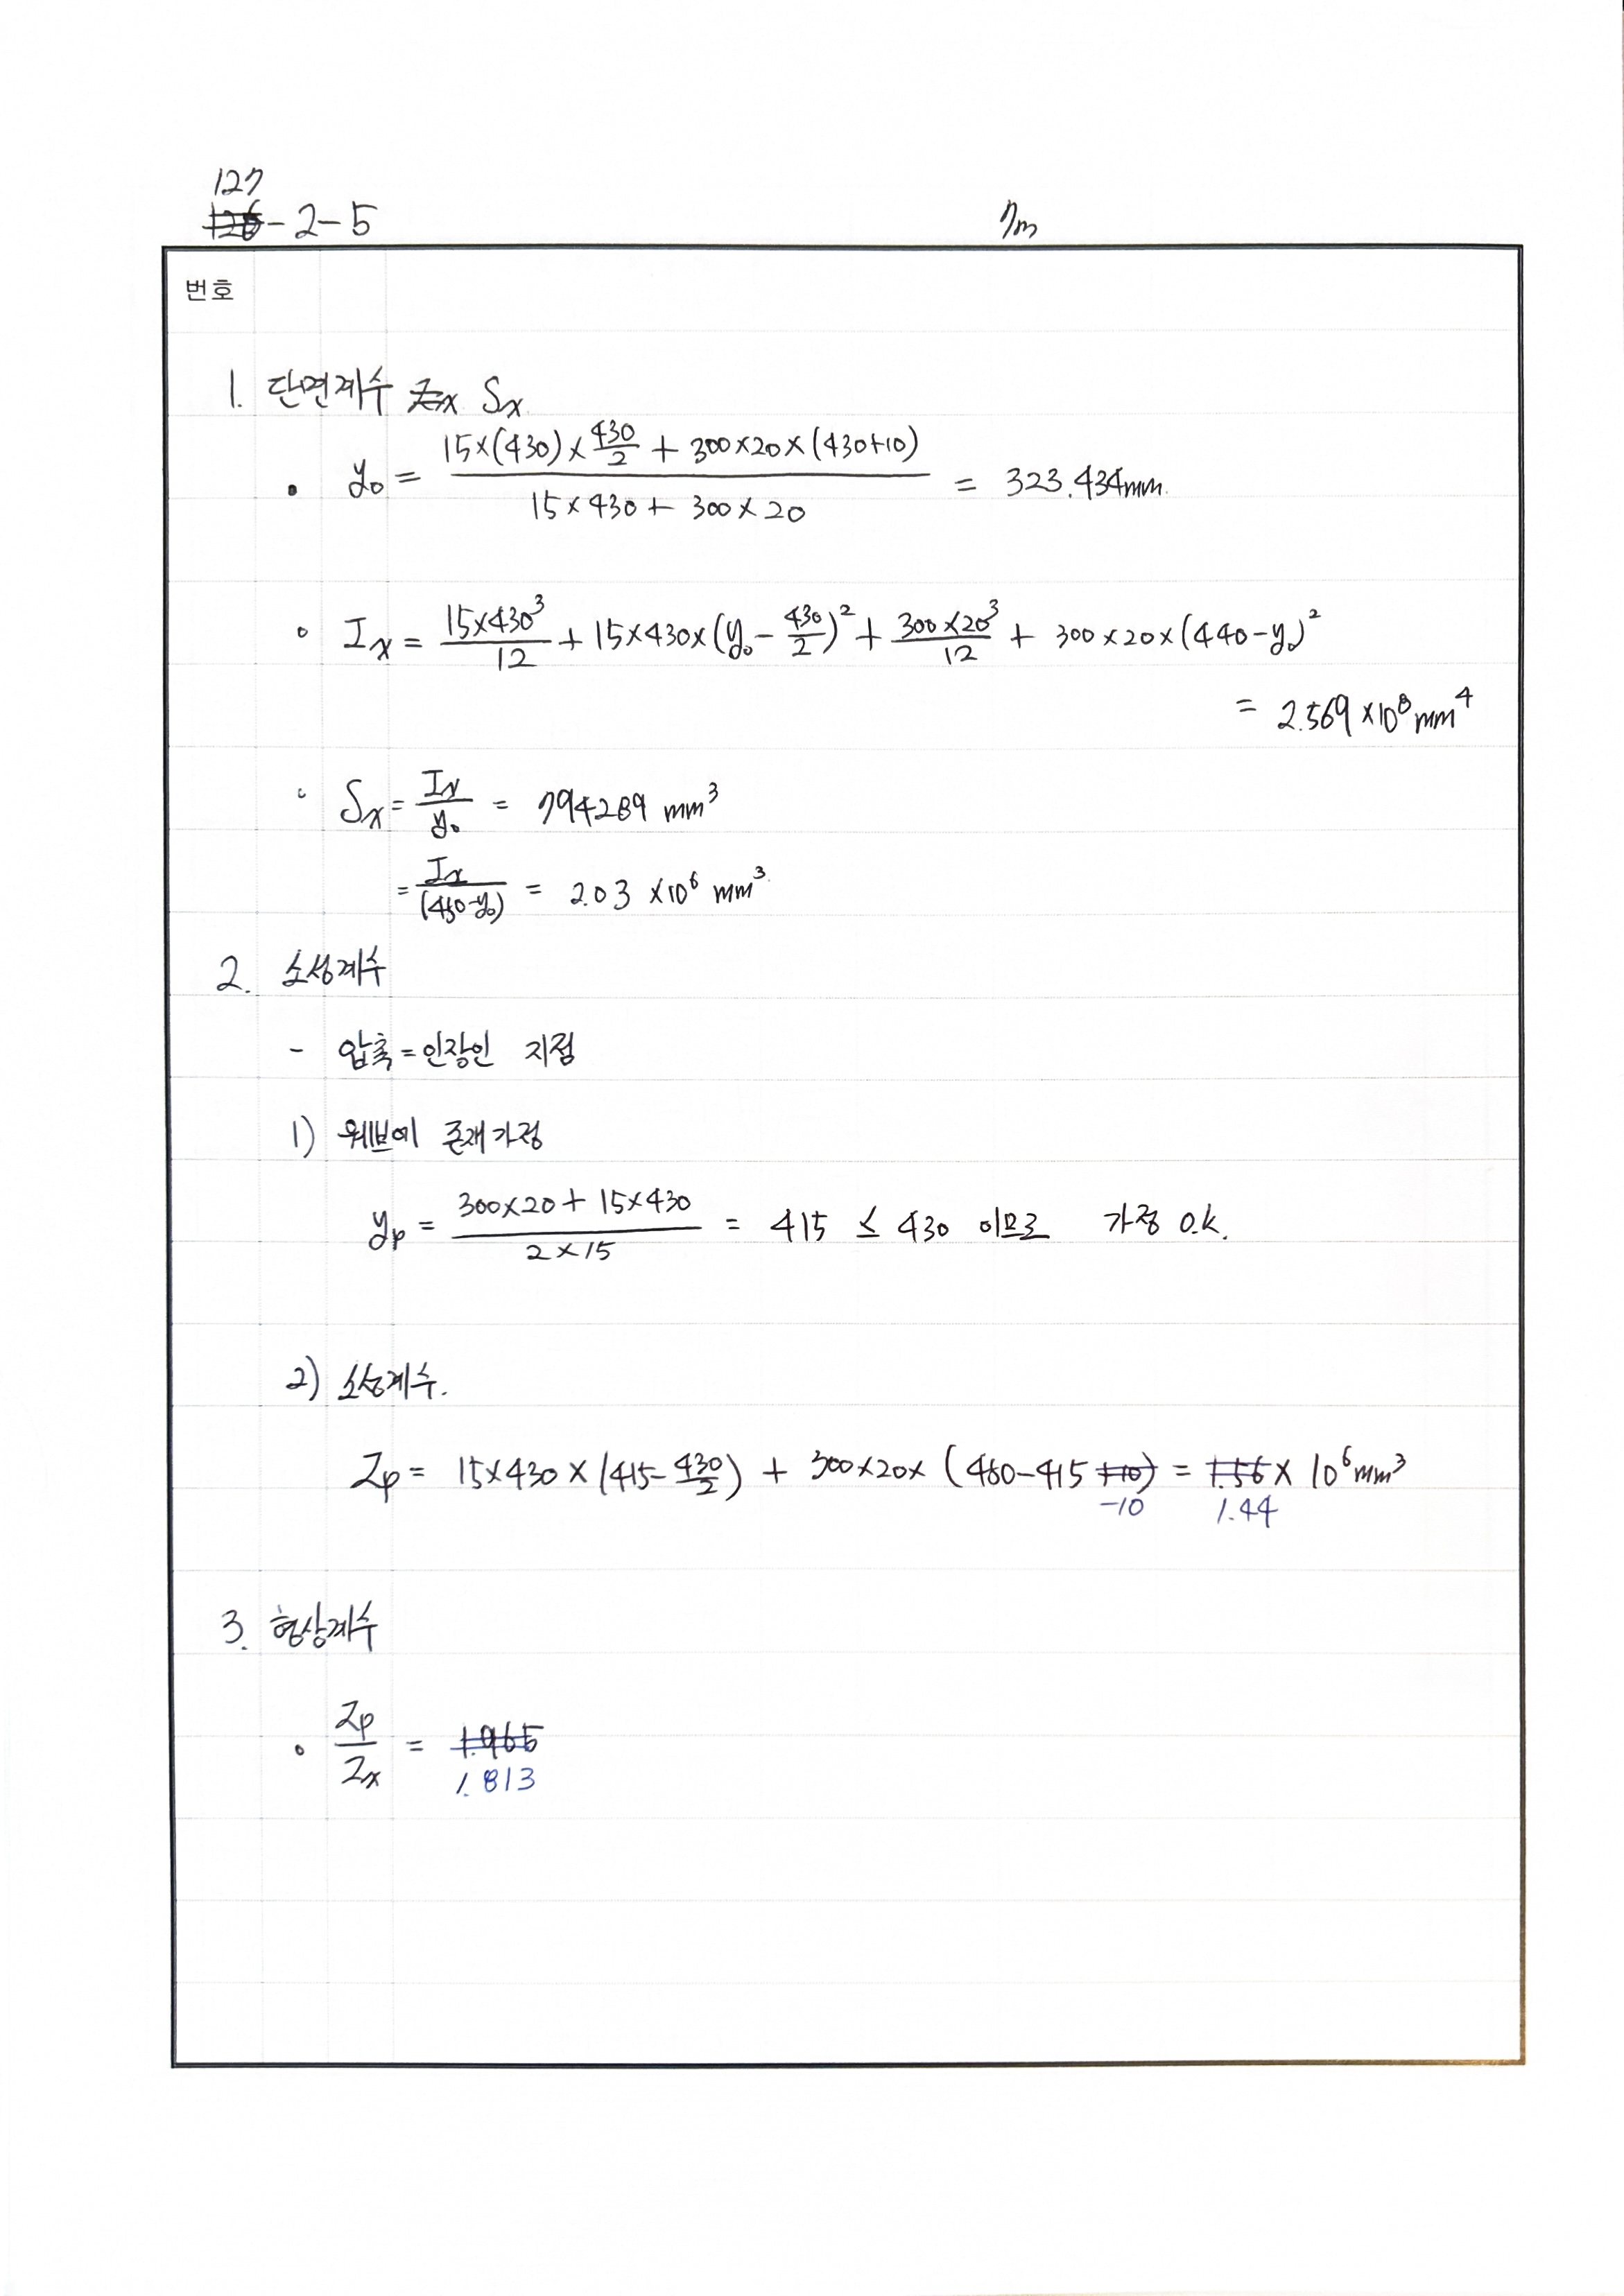 127
126 - 2 - 5
7m
번호
1. 단면계수 Zx Sx
• y₀ = (15×(430)×430/2 + 300×20×(430+10)) / (15×430 + 300×20) = 323.434mm.
∘ Ix = 15×430³/12 + 15×430×(y₀ - 430/2)² + 300×20³/12 + 300×20×(440-y₀)²
= 2.569 ×10⁸ mm⁴
∘ Sx = Ix/y₀ = 794289 mm³
= Ix/(450-y₀) = 2.03 ×10⁶ mm³.
2. 소성계수
- 압축=인장인 지점
1) 웨브에 존재가정
yp = (300×20 + 15×430) / (2×15) = 415 ≤ 430 이므로 가정 O.K.
2) 소성계수.
Zp = 15×430×(415-430/2) + 300×20×(450-415+10) = 1.56× 10⁶mm³
-10 1.44
3. 형상계수
∘ Zp/Zx = 1.965
1.813